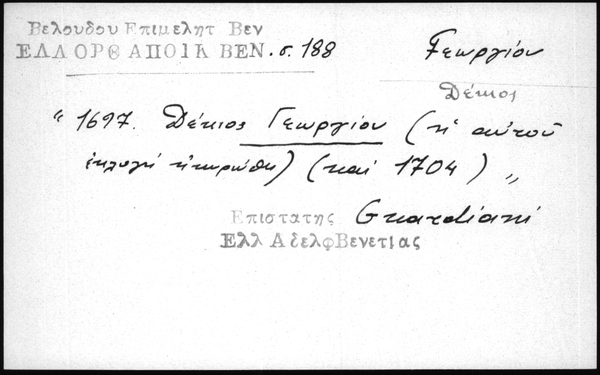 Βελουδου Επιμελητ Βεν
ΕΛΛ ΟΡΘ ΑΠΟΙΚ ΒΕΝ. σ. 188
Γεωργίου
Δέκιος
" 1697. Δέκιος Γεωργίου (ἡ αὐτοῦ
ἐκλογή ἠκυρώθη) (καί 1704) "
Επιστατης Guardiani
Ελλ Αδελφ Βενετιας